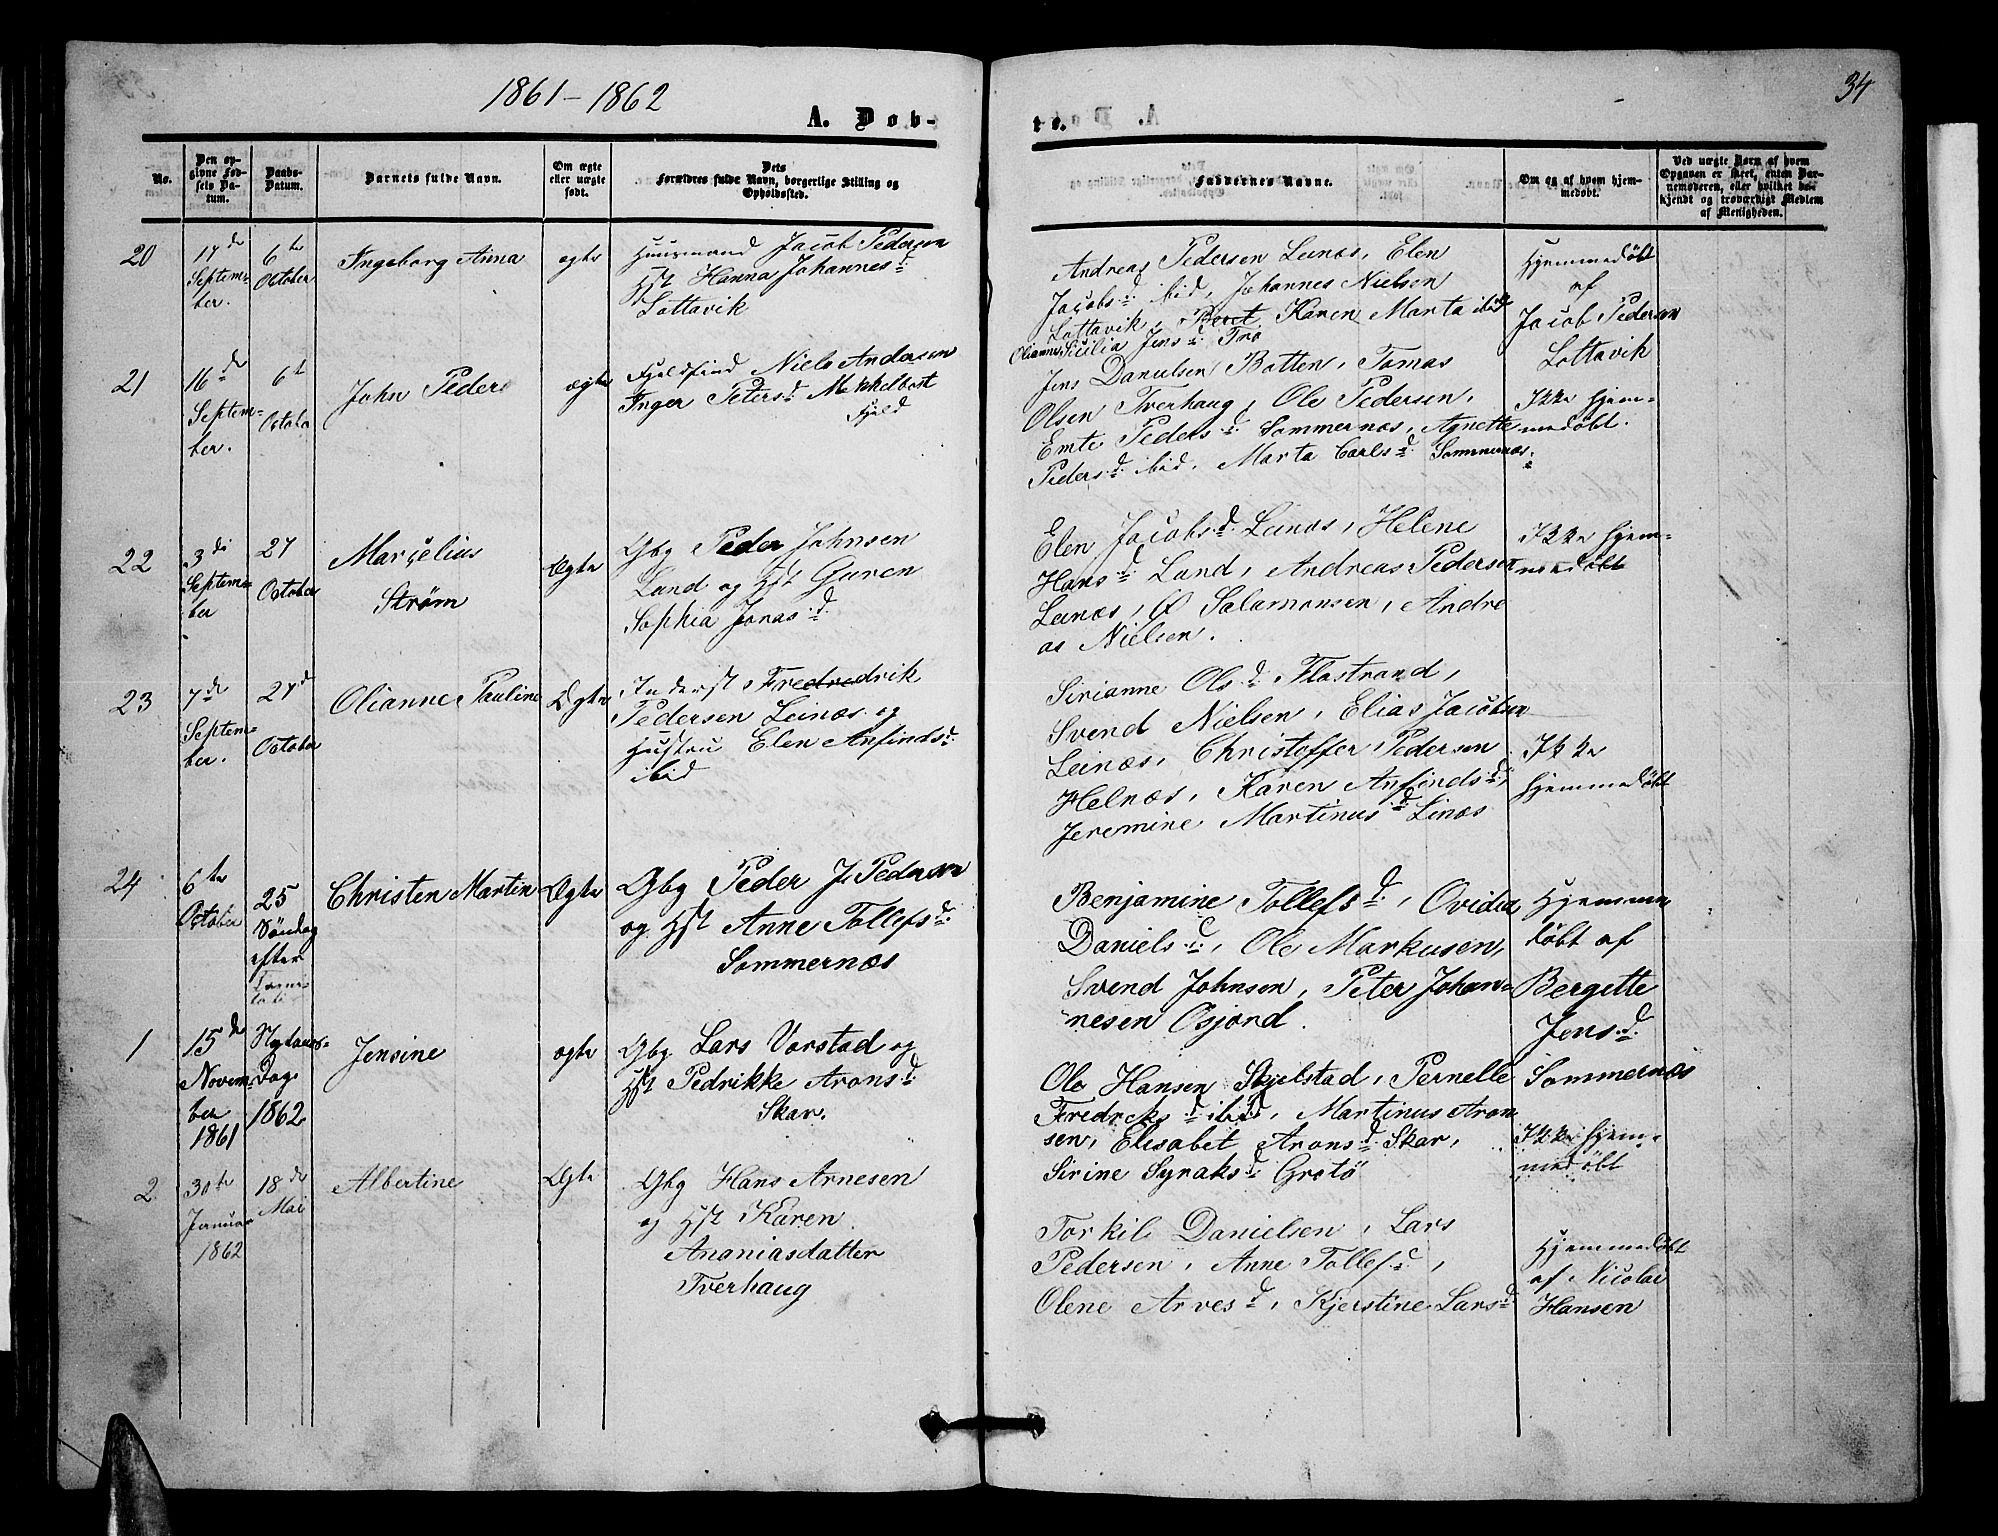 1861-1862
34
A. Døb-
te.
No.
Den op-
givne Fød-
sels Da-
tum.
Daabs-
Datum.
Barnets fulde Navn.
Om ægte
eller uægte
født.
Dets
Forældres fulde Navn, borgerlige Stilling og
Opholdssted.
Faddernes Navne.
Om og af hvem hjem-
medøbt.
Ved uægte Børn af hvem
Opgaven er skeet, enten Bar-
nemoderen, eller hvilket be-
kjendt og troværdigt Medlem
af Menigheden.
20
17de
Septem-
ber.
6te
October
Ingeborg Anna
ægte
Huusmand Jacob Pedersen
Hst Hanna Johannesd.
Lottavik
Andreas Pedersen Leinæs, Elen
Jacobsd. ibid, Johannes Nielsen
Lottavik, Beret Karen Marta ibid
Olianne Sicilia Jensd. Trø
Hjemmedøbt
af
Jacob Pedersen
Lottavik
21
16de
Septem-
ber.
6te
October
John Peder
ægte
Fjeldfind Niels Andersen
Inger Petersd. Mekkelbost
Fjeld
Jens Danielsen Botten, Tomas
Olsen Tverhaug, Ole Pedersen,
Emte Pedersd. Sommernæs, Agnette
Pedersd. ibid, Marta Carlsd. Sommernæs.
Ikke hjem-
medøbt.
22
3de
Septem-
ber
27
October
Marcelius
Strøm
Ægte
Gbg Peder Johnsen
Land og Hst Guren
Sophia Jonasd.
Elen Jacobsd. Leinæs, Helene
Hansd. Land, Andreas Pedersen
Leinæs, O Salamonsen, Andre
as Nielsen.
Ikke hjem-
medøbt
23
7de
Septem-
ber.
27d
October
Olianne Pauline
Ægte
Inderst Fredredrik
Pedersen Leinæs og
Hustru Elen Anfindsd.
ibid
Sirianne Olsd. Flostrand,
Svend Nielsen, Elias Jacobsen
Leinæs, Christoffer Pedersen
Helnæs, Karen Anfindsd.,
Jeremine Martinusd. Linæs
Ikke
hjemmedøbt
24
6te
October
25
Søndag
efter
Christen Martin
Ægte
Gbg Peder J. Pedersen
og Hst Anne Tollefsd.
Sommernæs
Benjamine Tollefsd., Ovidia
Danielsd., Ole Markusen,
Svend Johnsen, Peter Johan-
nesen Osjord.
Hjemme
døbt af
Bergette
Jensd.
Sommernæs
1
15de
Novem-
ber
1861
Nytaars-
Dag
1862
Jensine
ægte
Gbg Lars Vorstad og
Hst Pedrikke Aronsd.
Skar.
Ole Hansen Skjelstad, Pernelle
Fredreksd. ibid, Martinus Aron
sen, Elisabet Aronsd. Skar,
Sirine Syraksd. Grotø
Ikke hjem-
medøbt
2
30te
Januar
1862
18de
Mai
Albertine
Ægte
Gbg Hans Arnesen
og Hst Karen
Ananiasdatter
Tverhaug
Torkil Danielsen, Lars
Pedersen, Anne Tollefsd.,
Olene Arvesd., Kjerstine Larsd.
Hjemmedøbt
af Nicolai
Hansen